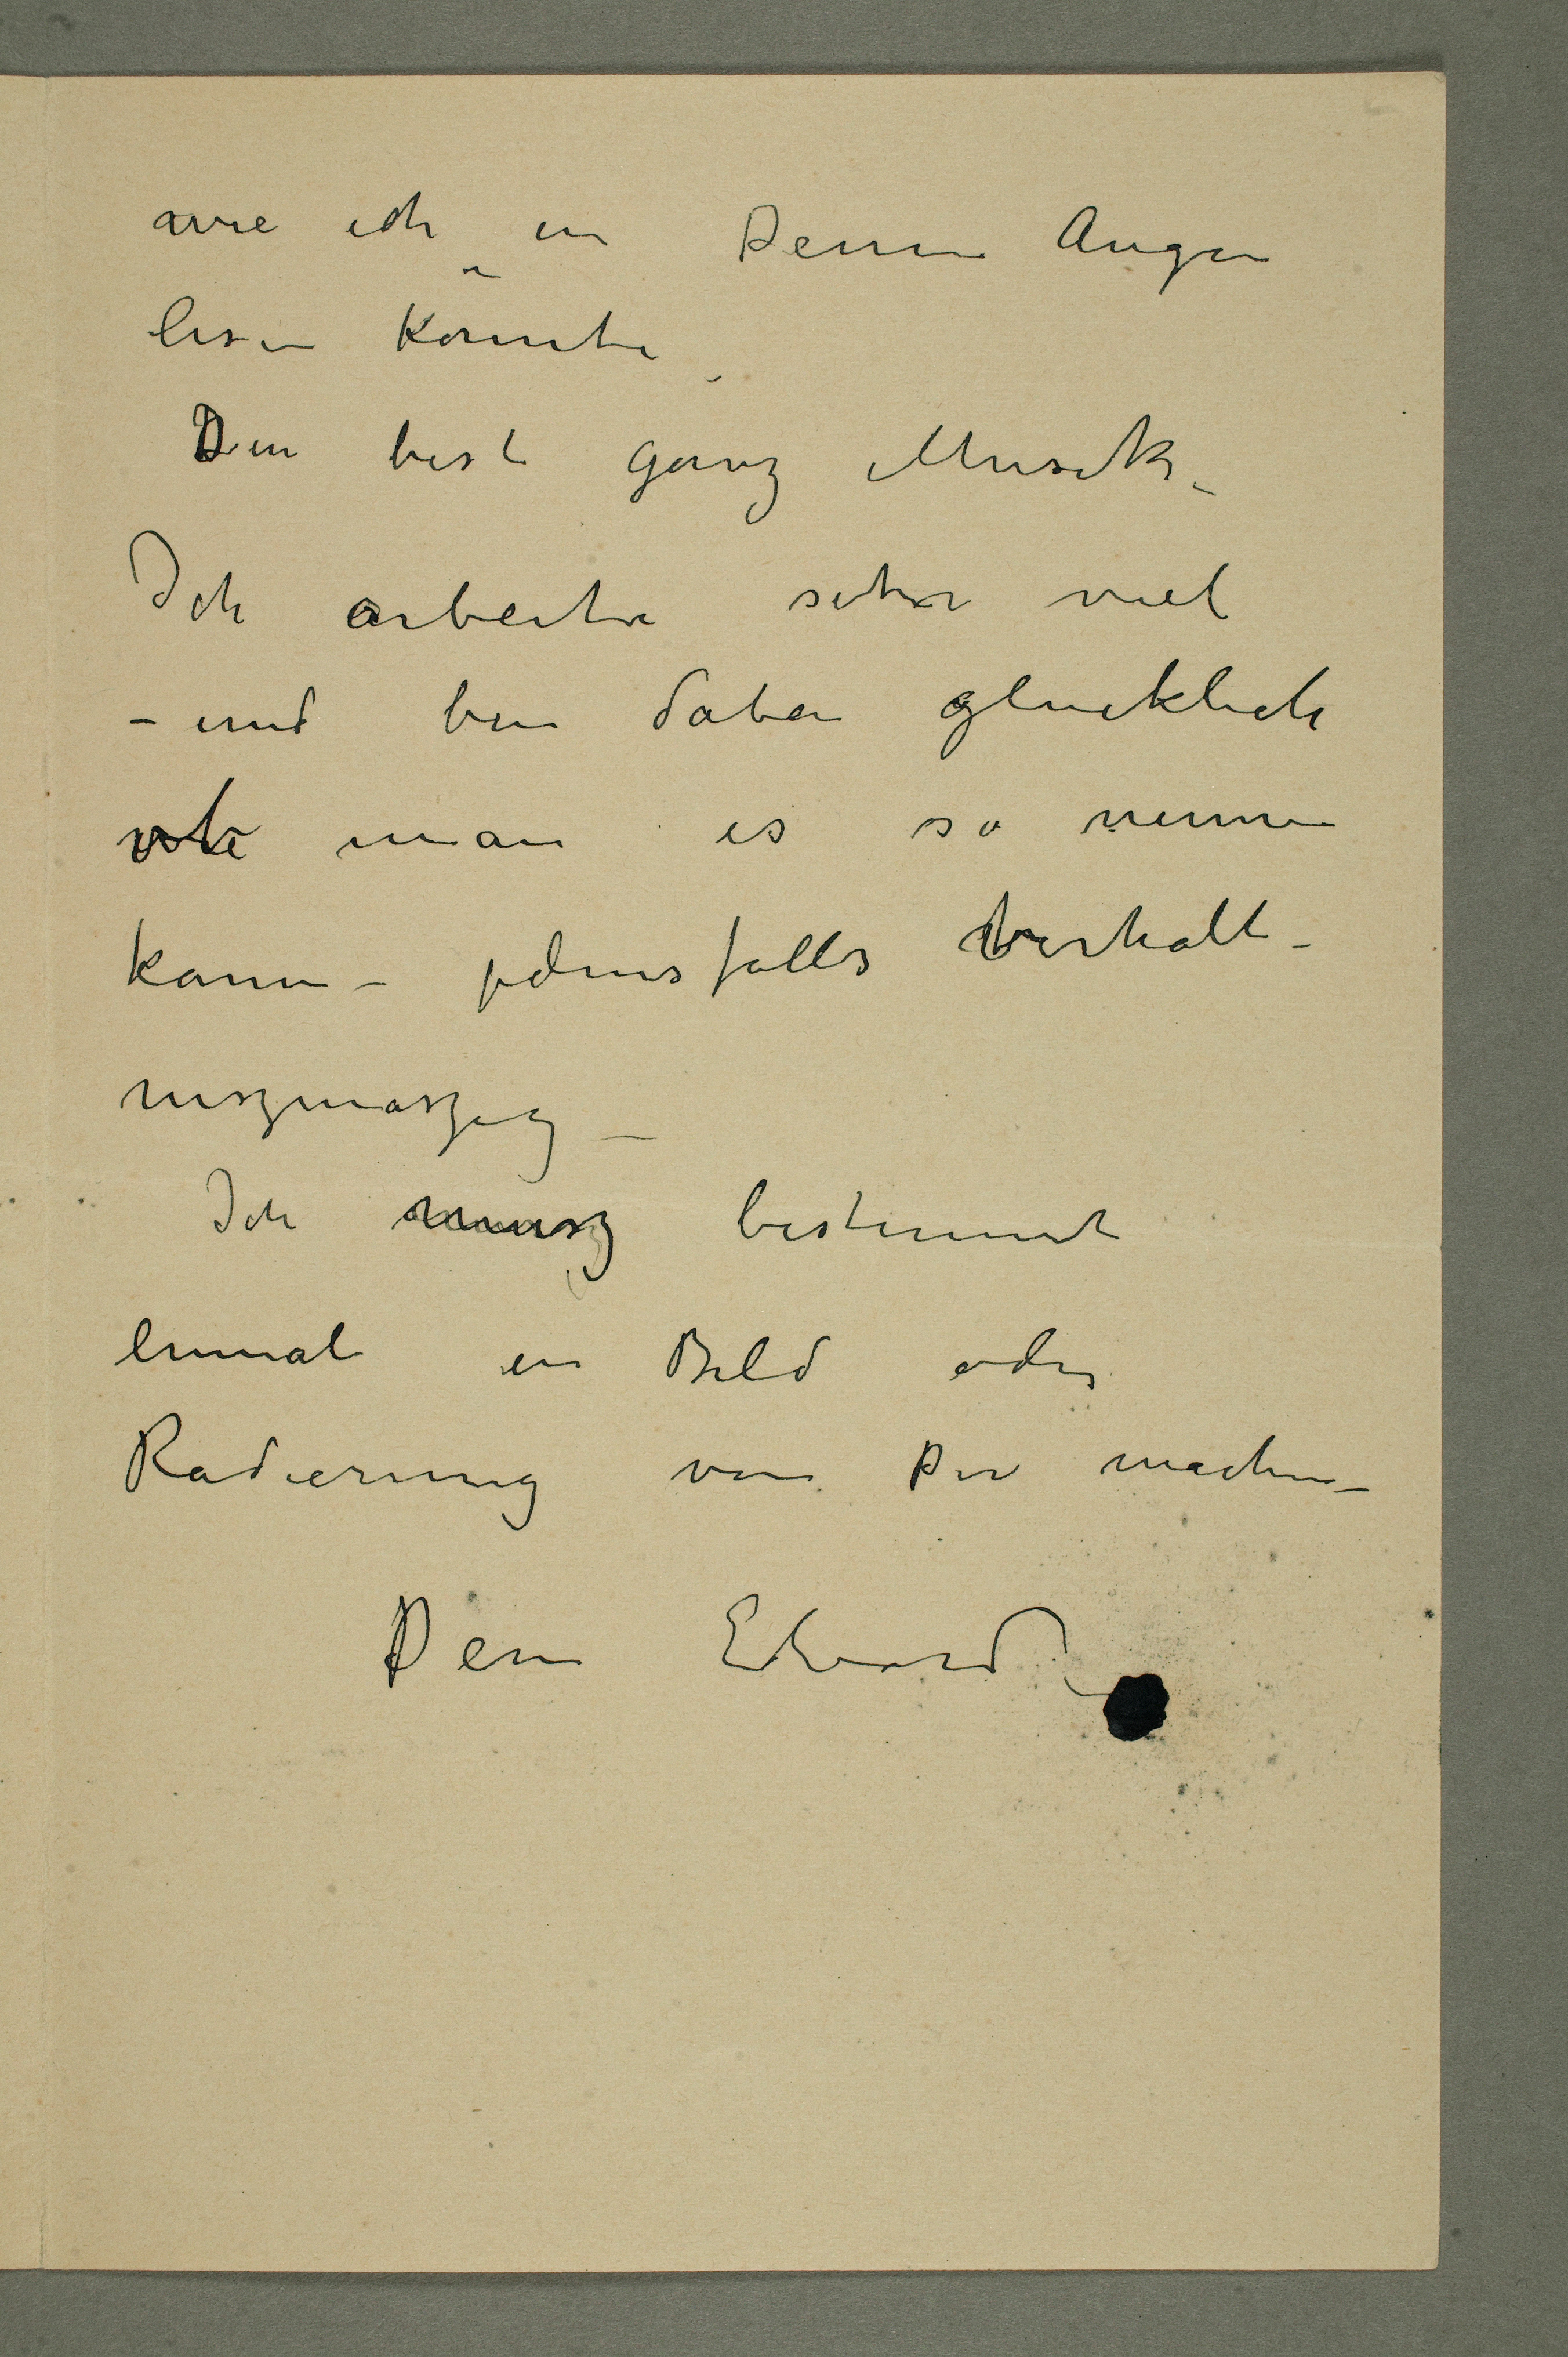 wie ich in Deinen Augen
lesen könnte
Du bist ganz Musik –
Ich arbeite sehr viel
– und bin dabei glucklich
man es so nennen
kann – jedensfalls verhalt-
niszmaszig –
Ich musz bestimmt
einmal ein Bild oder
Radierung von Dir machen –
Dein Edvard